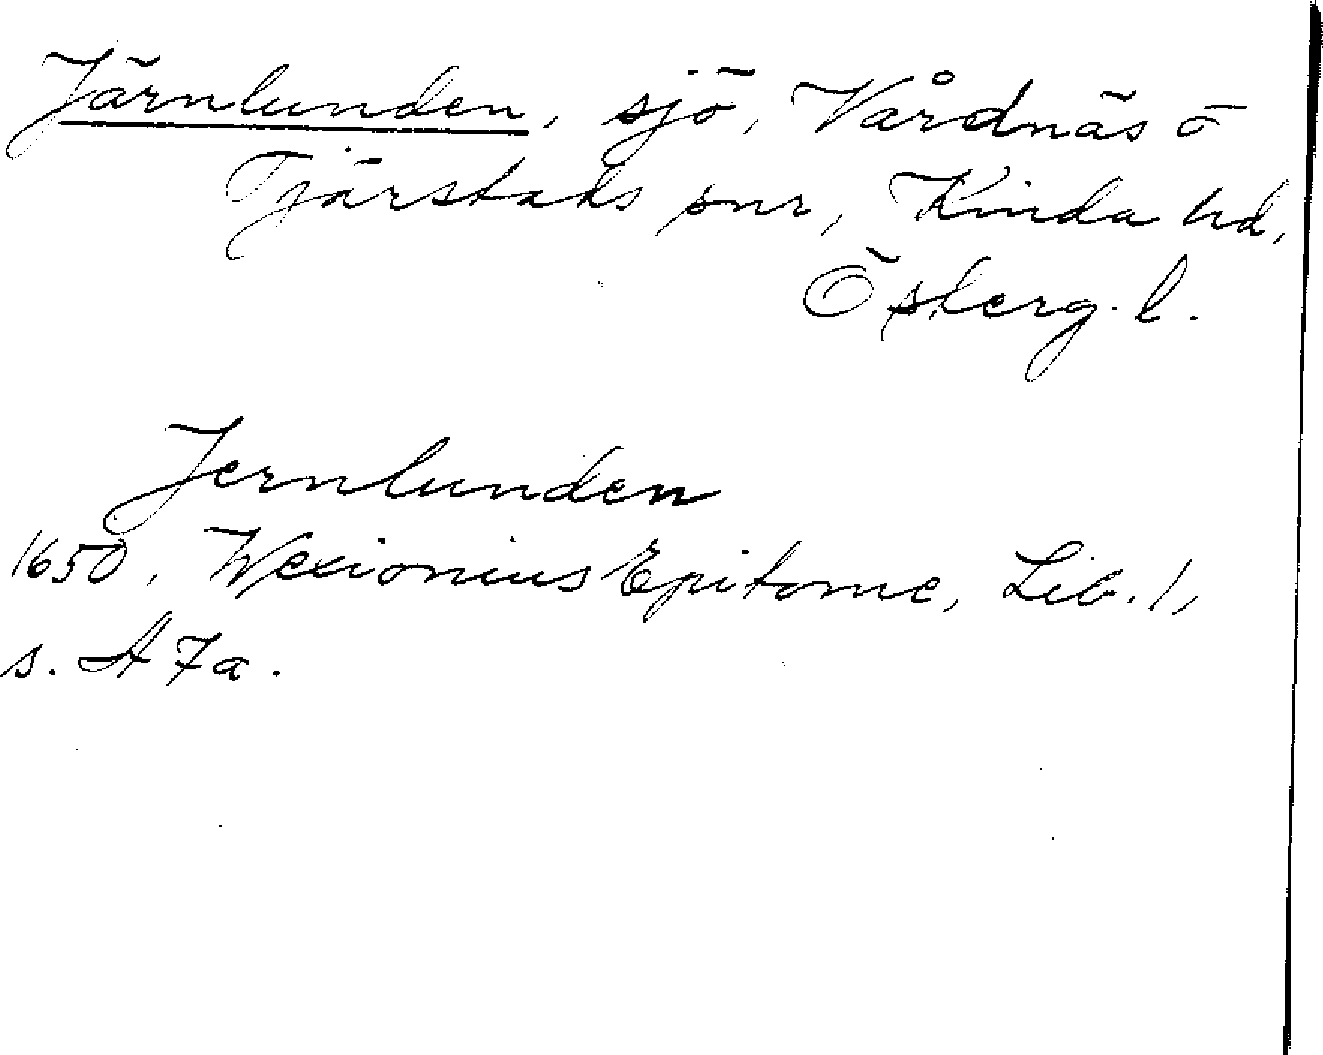 Järnlunden, sjö, Vårdnäs o
Tjärstads snr, Kinda hd,
Österg. l.
Jernlunden
1650, Wexionius Epitome, Lib. 1,
s. A 7a.